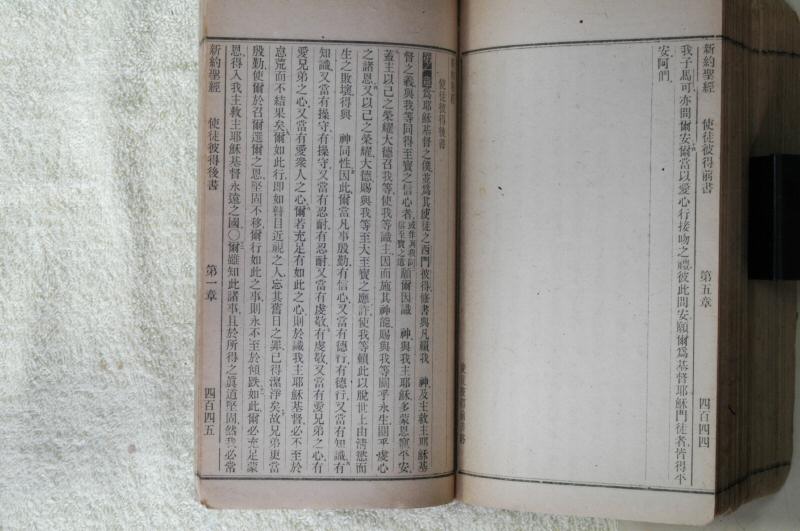 新約聖經 使徒彼得前書 第五章 四百四四
我子馬可亦問爾安爾當以愛心行接吻之禮彼此問安願爾爲基督耶穌門徒者皆得平
安阿們
使徒彼得後書
爲耶穌基督之僕並爲其使徒之西門彼得修書與凡賴我 神及主救主耶穌基
督之義與我等同得至寶之信心者願爾因識 神與我主耶穌多蒙恩寵平安
蓋主以己之榮耀大德召我等使我等識主因而施其神能賜與我等關乎永生關乎虔心
之諸恩又以己之榮耀大德賜與我等至大至寶之應許使我等賴此以脫世上由情慾而
生之敗壞得與 神同性因此爾當凡事殷勤有信心又當有德行有德行又當有知識有
知識又當有操守有操守又當有忍耐有忍耐又當有虔敬有虔敬又當有愛兄弟之心有
愛兄弟之心又當有愛衆人之心爾若充足有如此之心則於識我主耶穌基督必不至於
怠荒而不結果矣爾如此行即如瞽目近視之人忘其舊日之罪已得潔淨矣故兄弟更當
殷勤使爾於召爾選爾之恩堅固不移爾行如此之事則永不至於傾跌如此爾必充足蒙
恩得入我主救主耶穌基督永遠之國〇爾雖知此諸事且於所得之眞道堅固然我必常
新約聖經 使徒彼得後書 第一章 四百四五